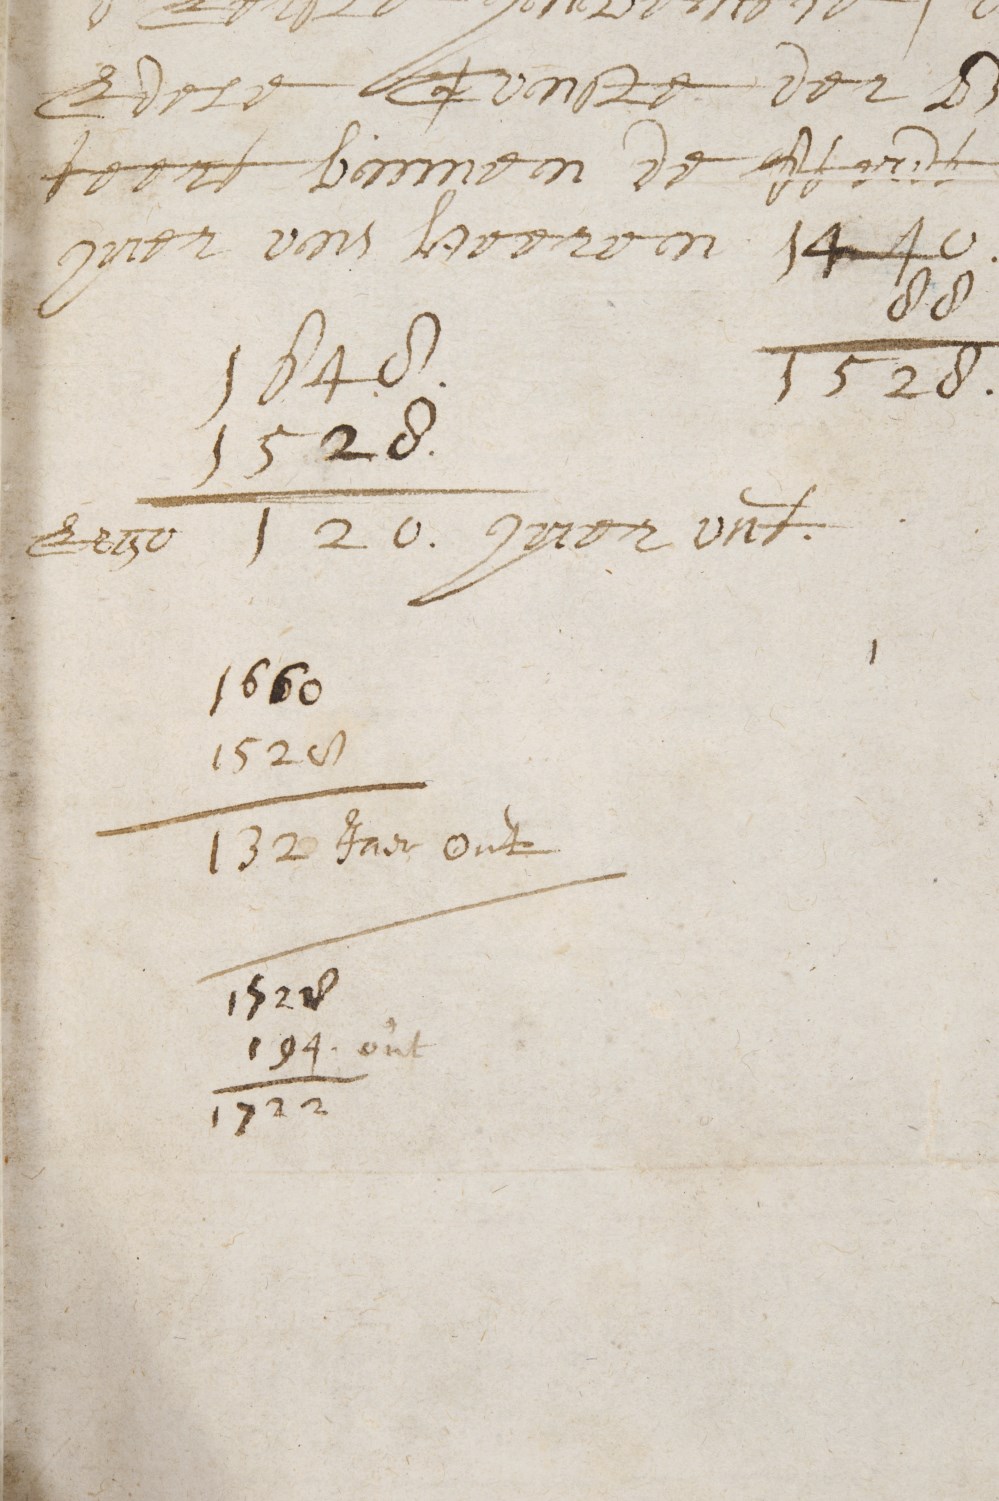 Edele Conste der
binnen de
Jaer ons heeren 1440.
88
1528.
1648.
1528.
Ergo 120. Jaer out.
1660
1528
132 Jaer out
1528
194. out
1722